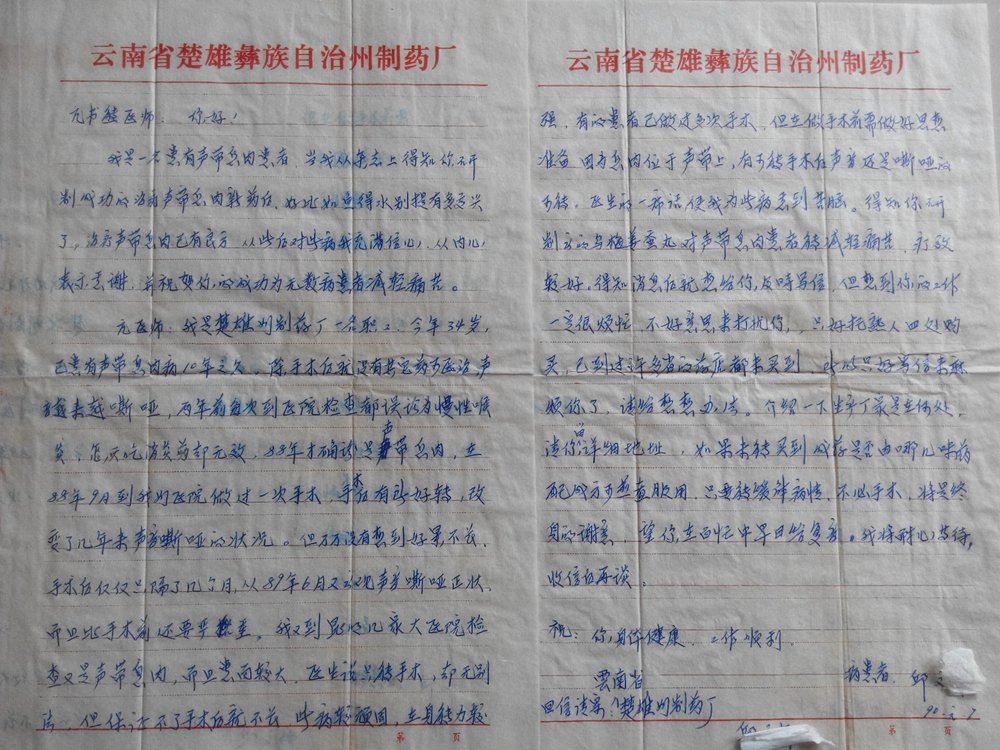 云南省楚雄彝族自治州制药厂
元书德医师： 你好！
我是一名患有声带息肉患者，当我从杂志上得知你研
制成功的治疗声带息肉新药后，好比如鱼得水别提有多高兴
了，治疗声带息肉已有良方，从此后对此病我充满信心，从内心
表示感谢，并祝贺你的成功为无数病患者减轻痛苦。
元医师：我是楚雄州制药厂一名职工，今年34岁，
已患有声带息肉病10年之久，除手术后就没有其它药可医治声
音越来越嘶哑，两年前每次到医院检查都误诊为慢性喉
炎，怎么吃消炎药却无效，88年才确诊是声带息肉，在
88年9月到我州医院做过一次手术，手术后有所好转，改
变了几年来声音嘶哑的状况。但万万没有想到好景不长，
手术后仅仅只隔了几个月，从89年6月又出现声音嘶哑症状，
而且比手术前还要严重。我又到昆明几家大医院检
查又是声带息肉，而且患面较大，医生说只能手术，却无别
法，但保证不了手术后就不长，此病较顽固，在身体力较
第 页
云南省楚雄彝族自治州制药厂
强，有的患者已做过多次手术，但在做手术前需做好思想
准备，因为息肉位于声带上，有可能手术后声音还是嘶哑的
可能，医生的一席话使我为此病感到苦恼。得知你研
制的乌梅姜蚕丸对声带息肉患者能减轻痛苦，疗效
较好，得知消息后就想给你及时写信，但想到你的工作
一定很烦忙，不好意思来打扰你，只好托熟人四处购
买，已到过许多省的药店都未买到，此时只好写信来麻
烦你了，请给想想办法。介绍一下生产厂家是在何处，
请你留详细地址，如果未能买到成药是否由哪几味药
配成方可煎服用，只要能缓解病情，不必手术，将是终
身的谢意，望你在百忙中早日给复音。我将耐心等待，
收信后再谈。
祝：你身体健康，工作顺利。
云南省 病患者：邱
回信请寄：楚雄州制药厂 90.2.7
第 页